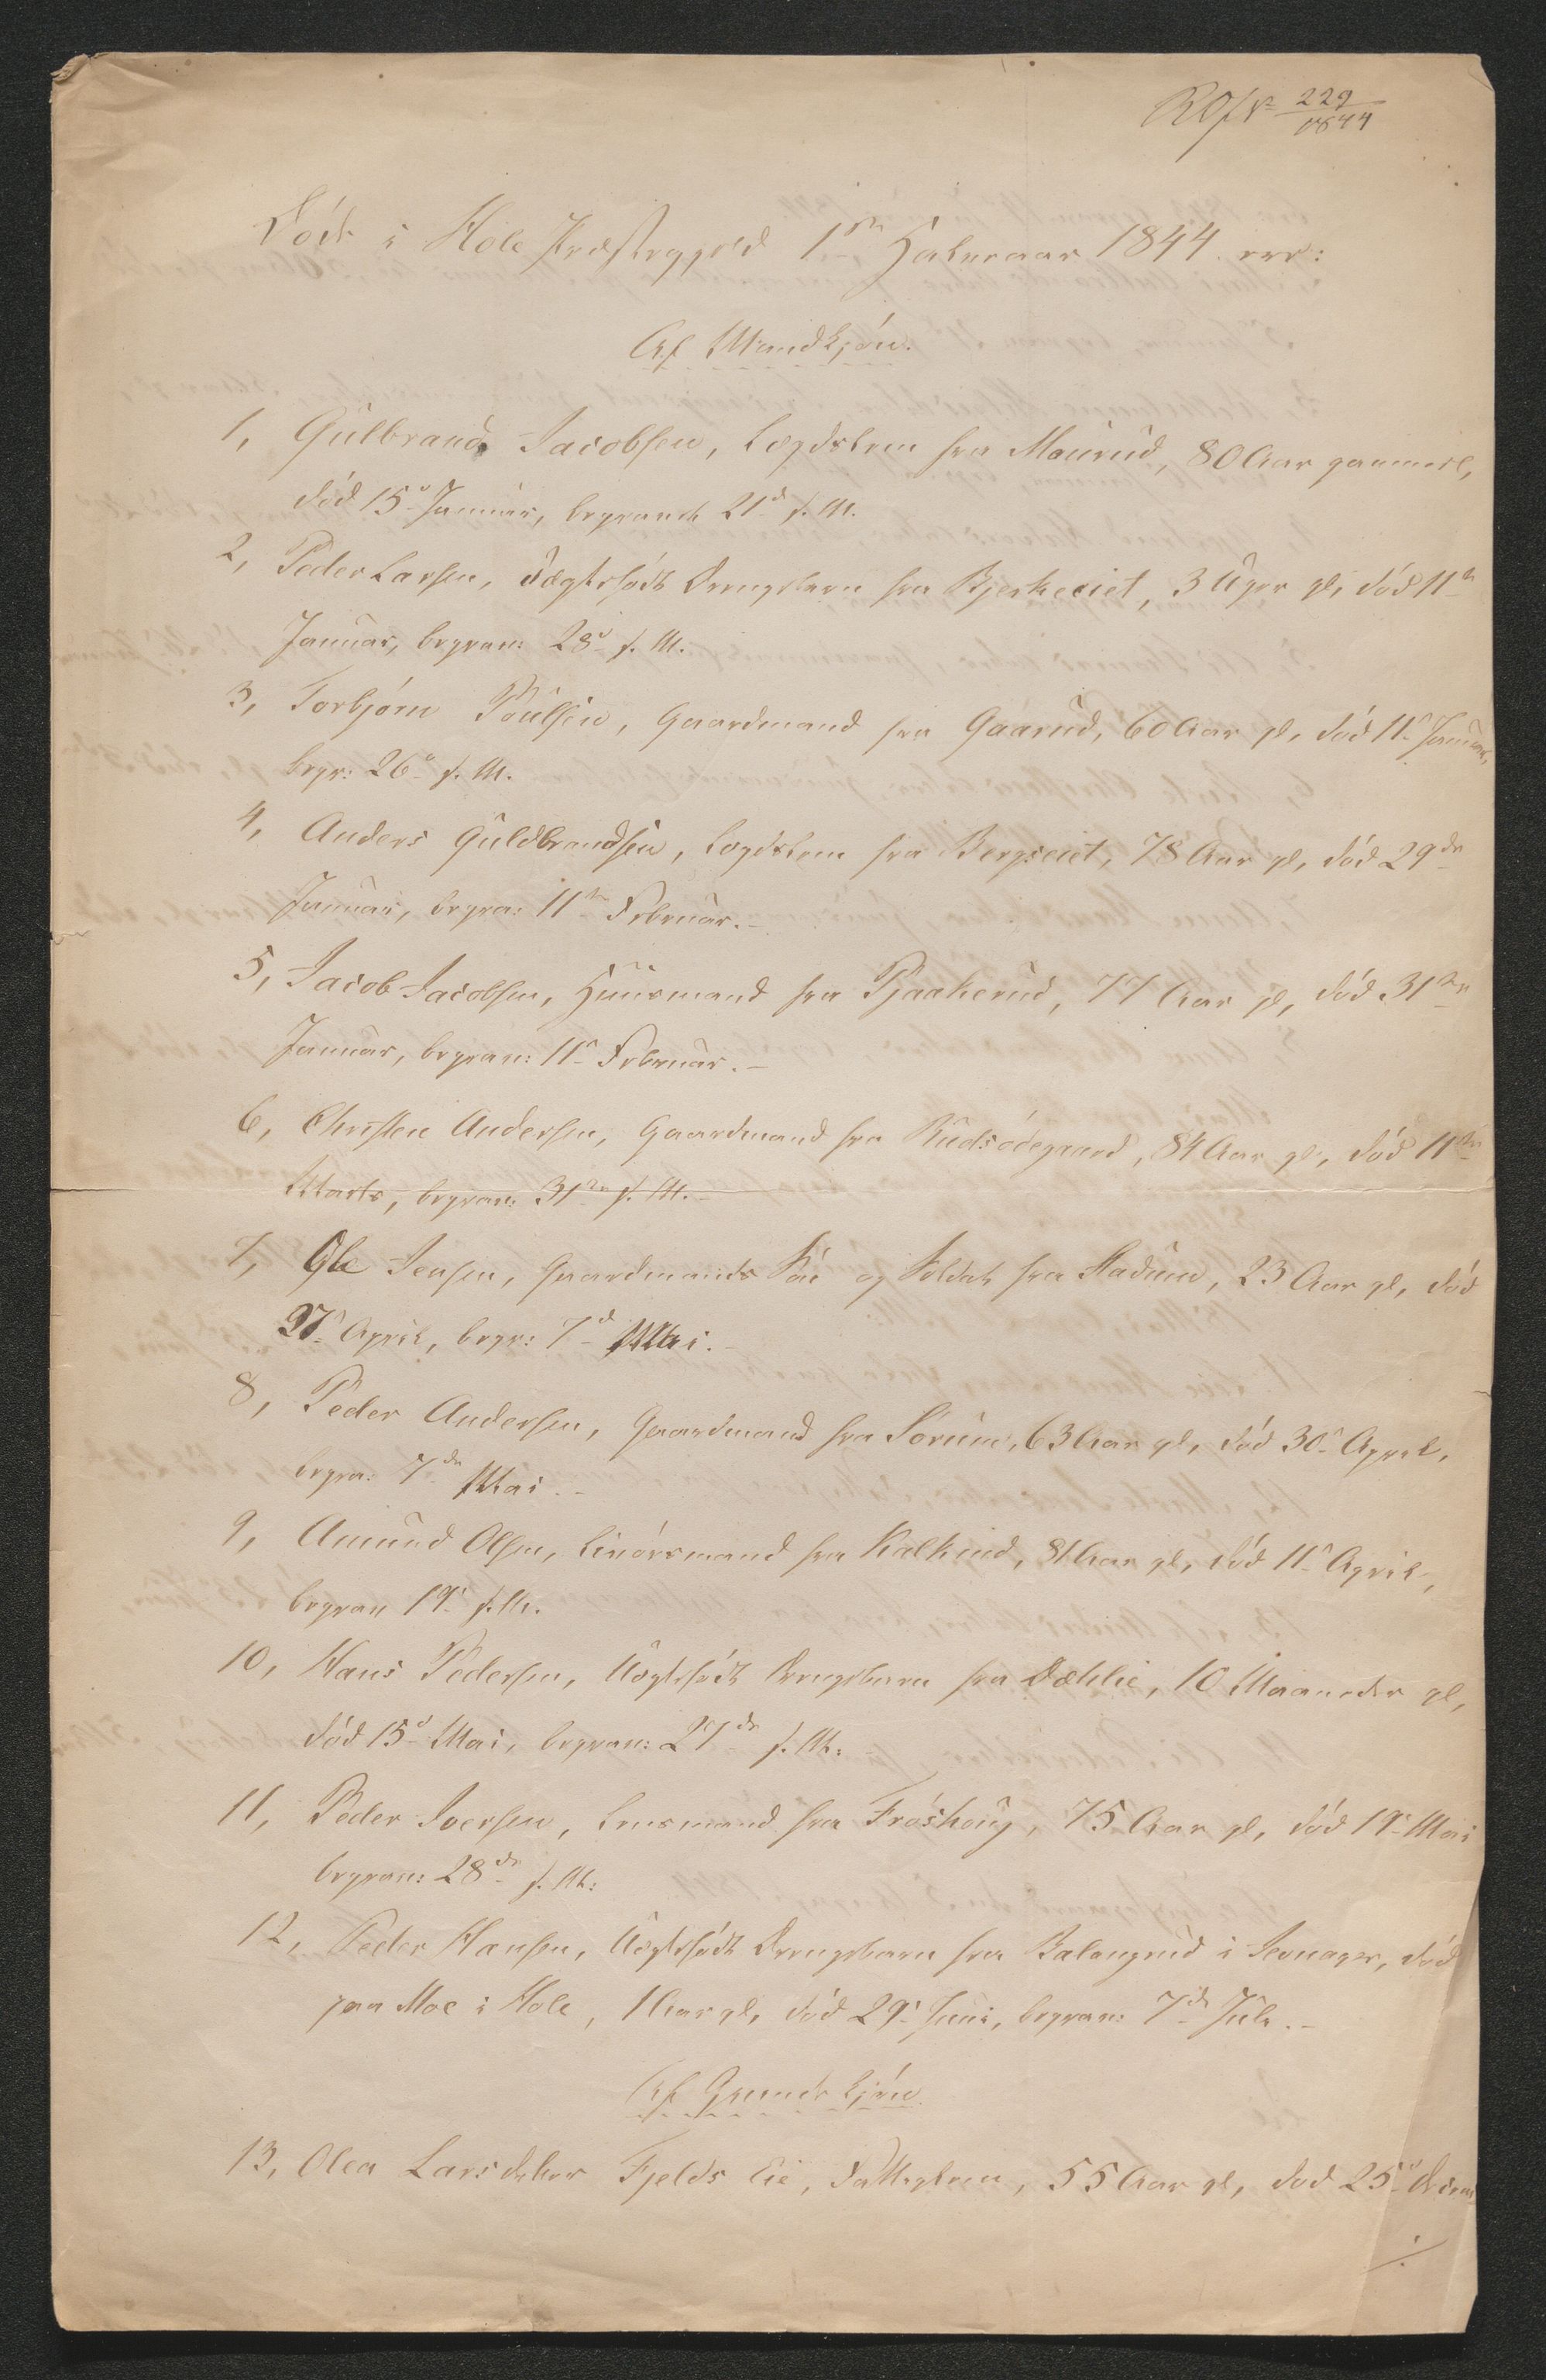 229
1844
Døde i Hole Præstegjeld 1ste Halvaar 1844 ere:
Af Mandkjøn.
1, Gulbrand Jacobsen, Lægdslem fra Maurud, 80 Aar gammel,
død 15de Januar, begravet 21de s. M.
2, Peder Larsen, Ægtefødt Drengebarn fra Bjerkeeiet, 3 Uger gl, død 11te
Januar, begrav: 28de s. M.
3, Torbjørn Poulsen, Gaardmand fra Gaarud, 60 Aar gl, død 11te Januar,
begr: 26de s. M.
4, Anders Guldbrandsen, Lægdslem fra Bergseiet, 78 Aar gl, død 29de
Januar, begra: 11te Februar.-
5, Jacob Jacobsen, Huusmand fra Pjaakerud, 77 Aar gl, død 31te
Januar, begrav: 11te Februar.-
6, Christen Andersen, Gaardmand fra Rudsødegaard, 84 Aar gl, død 11te
Marts, begrav: 31te s. M.-
7, Ole Jensen, Gaardmands Søn og Soldat fra Stadum, 23 Aar gl, død
27de April, begr: 7de Mai.-
8, Peder Andersen, Gaardmand fra Sørum, 63 Aar gl, død 30te April,
begra: 7de Mai.-
9, Amund Olsen, fra 81 Aar gl, død 11te April,
begrav 19de s. M.
10, Hans Pedersen, Uægtefødt Drengebarn fra Dæhlie, 10 Maaneder gl,
død 15de Mai, begrav: 27de s. M:-
11, Peder Iversen, Lensmand fra Frøshoug, 75 Aar gl, død 19de Mai
begrav: 28de s. M:
12, Peder Hansen, Uægtefødt Drengebarn fra Balangrud i Jevnager, død
paa Moe i Hole, 1 Aar gl, død 29de Juni, begrav: 7de Juli.-
Af Qvindekjøn
13, Olea Larsdatter Fjelds Eie, Fattiglem, 55 Aar gl, død 25de